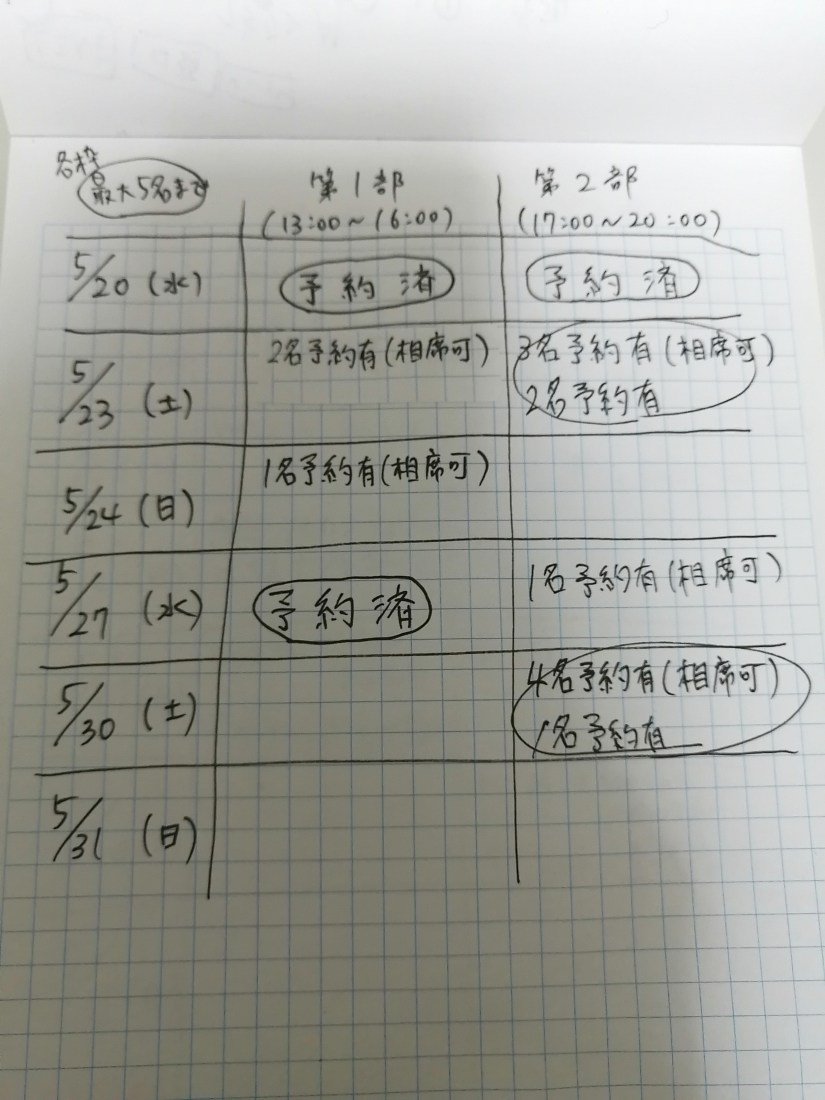 各枠
最大5名まで
第1部
第2部
(13:00～16:00)
(17:00～20:00)
5/20 (水)
予約済
予約済
5/23 (土)
2名予約有(相席可)
3名予約有(相席可)
2名予約有
5/24 (日)
1名予約有(相席可)
5/27 (水)
予約済
1名予約有(相席可)
5/30 (土)
4名予約有(相席可)
1名予約有
5/31 (日)